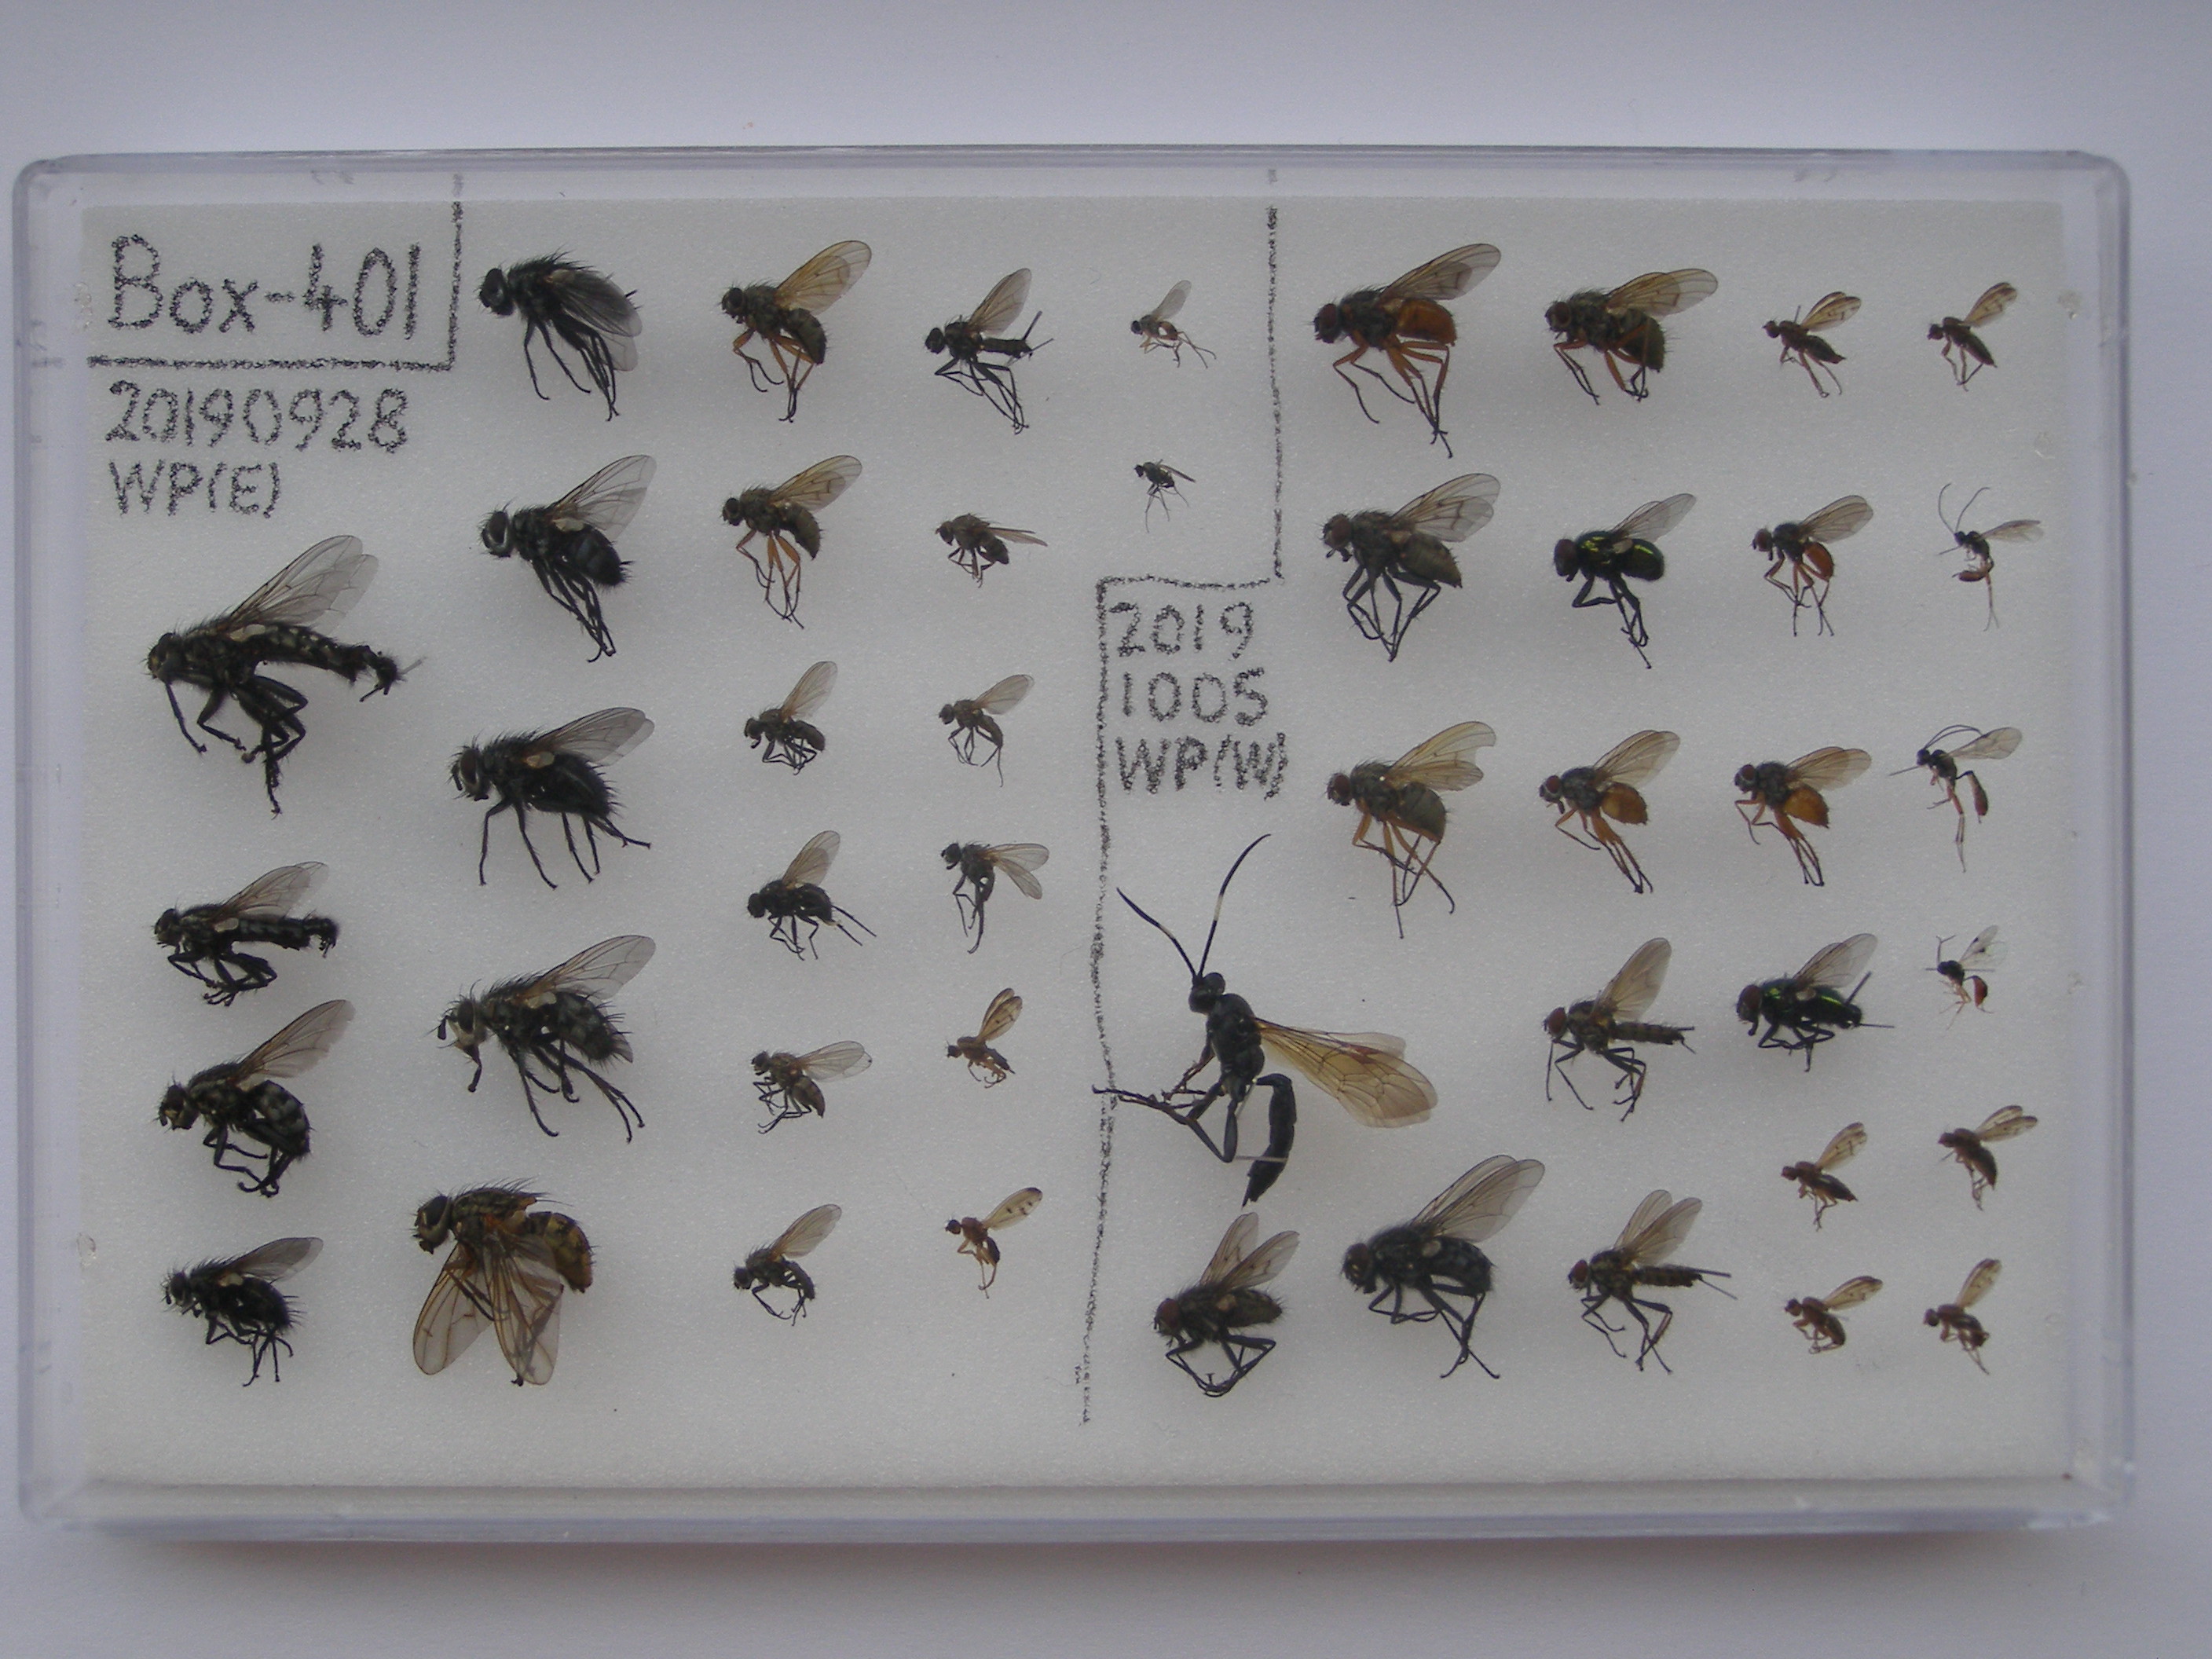 Box-401
20190928
WP(E)
2019
1005
WP(W)